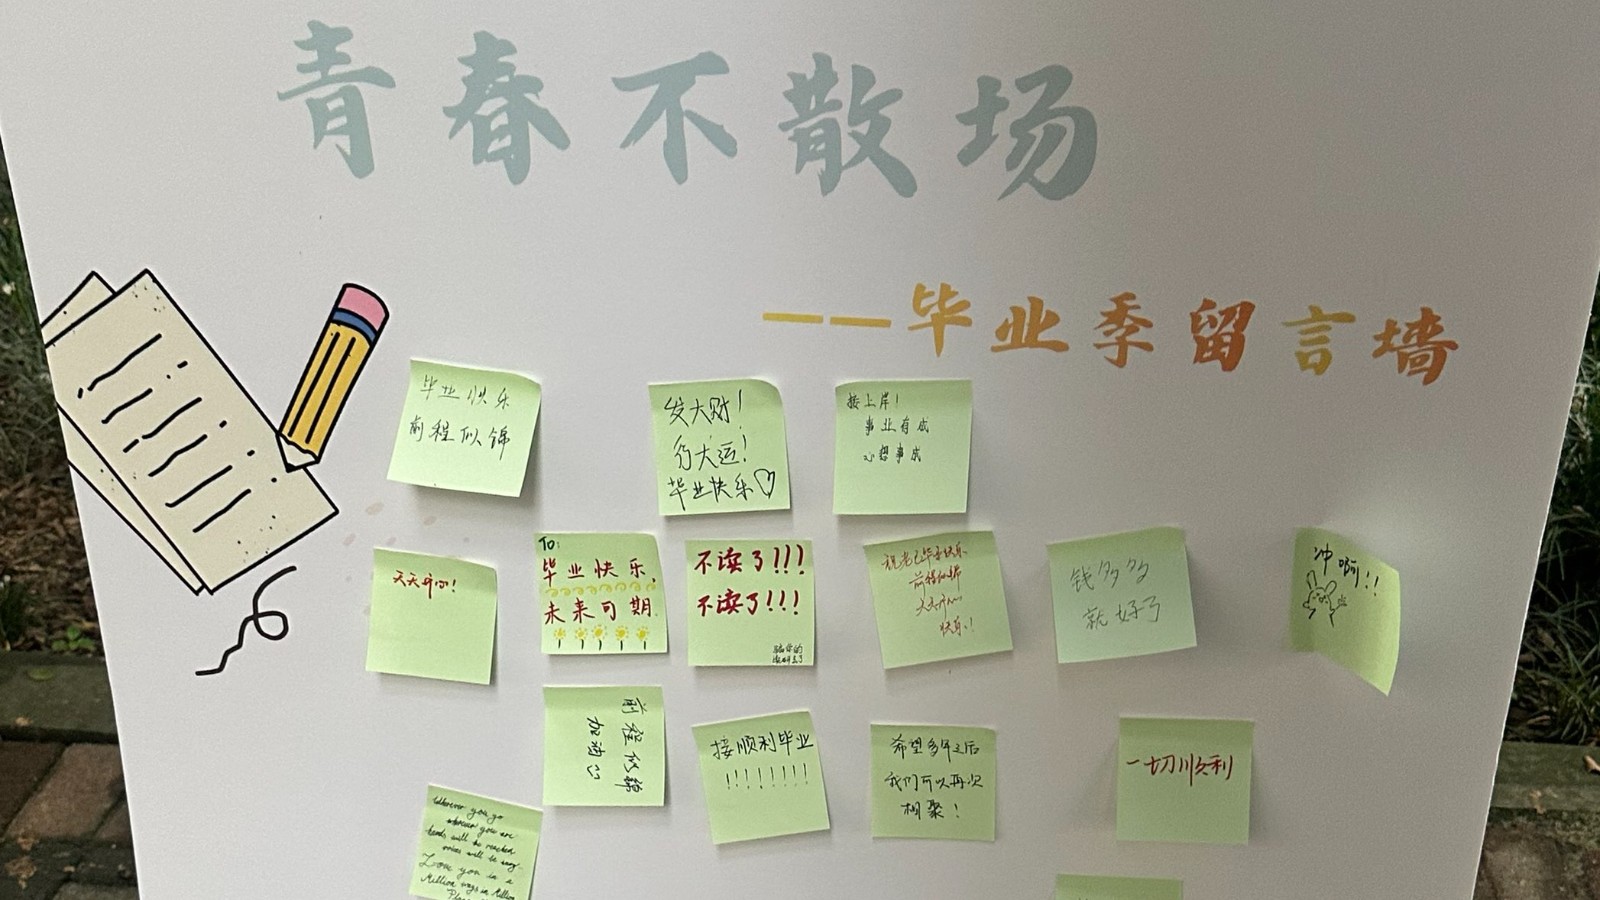 青春不散场
——毕业季留言墙
毕业快乐
前程似锦
发大财！
行大运！
毕业快乐♡
接上岸！
事业有成
心想事成
天天开心！
To:
毕业快乐.
未来可期.
不读了!!!
不读了!!!
祝老己毕业快乐
前程似锦
天天开心
快乐！
钱多多
就好了
冲啊!!
前程似锦
加油
接顺利毕业
!!!!!!!!
希望多年之后
我们可以再次
相聚！
一切顺利
Wherever you go
wherever you are
Love you in a
Million ways in Million